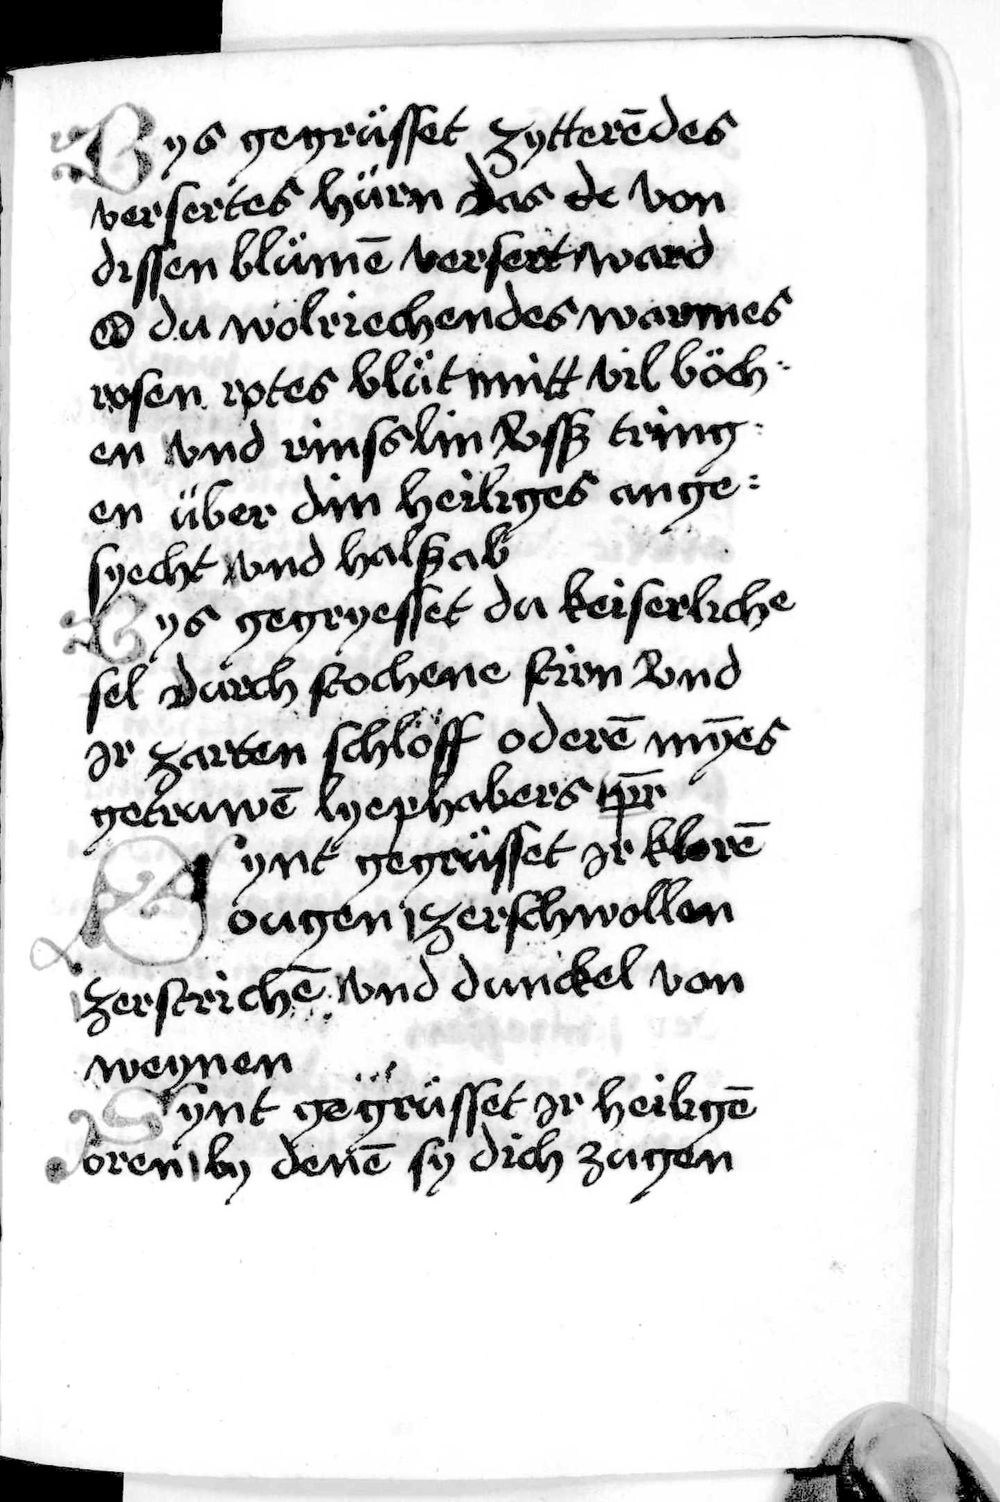 Bys gegrüsset zytterēdes
versertes hürn das de von
dissen blümē versert ward
O du wolriechendes warmes
rosen rotes blüt mitt vil böch-
en vnd rinsslin vssz tring-
en über din heiliges ange-
syecht vnd halsz ab
Bys gegryesset du keiserliche
sel durch stochene stirn vnd
jr zarten schlöff oderē mȳes
getruwē lyephabers
Synt gegrüsset jr klorē
ougen zerschwollen
zerstrichē vnd dunckel von
weynen
Synt gegrüsset jr heiligē
oren by denē sy dich zugen